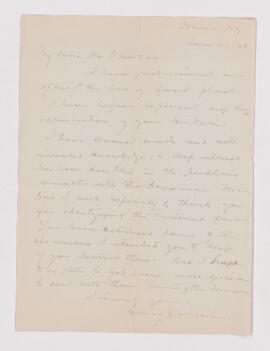 Ithaca, N.Y.
My Dear Mr Dawson
I have just received and
opened the box of fossil plants.
I have before expressed my
appreciation of your kindness.
I have learned much and with
increased knowledge, a deep interest
has been kindled in the problems
connected with the Devonian
But I wish especially to thank you
for identifying the
You have returned some of the
specimens I intended you to keep
if you desired them. But I hope
to be able to get some more specimens
to send with them during the summer
Sincerely yours,
Henry S. Williams